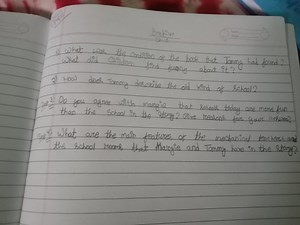 1) What was the condition of the book that Tommy had found?
What did children find funny about it?
2) How does Tommy describe the old kind of school?
3) Do you agree with margie that schools today are more fun
than the school in the story? Give reasons for your answer.
What are the main features of the mechanical teachers and
the school rooms that Margie and Tommy have in the story?